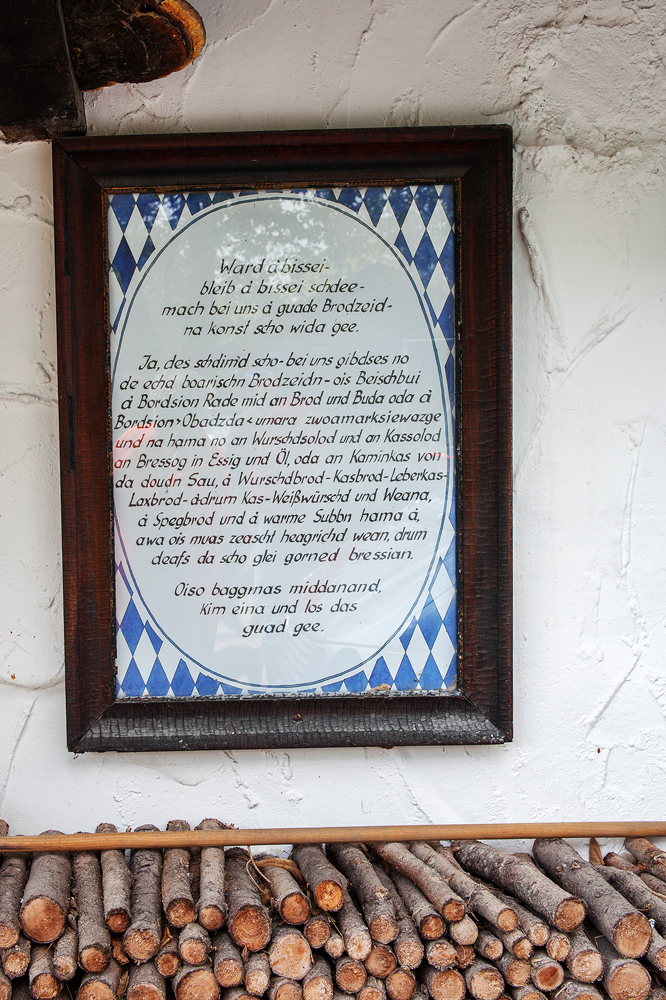 Ward à bissei-
bleib à bissei schdee-
mach bei uns à guade Brodzeid-
na konst scho wida gee.
Ja, des schdimd scho- bei uns gibdses no
de echd boarischn Brodzeidn- ois Beischbui
à Bordsion Rade mid an Brod und Buda oda à
Bordsion >Obadzda< umara zwoamarksiewazge
und na hama no an Wurschdsolod und an Kassolod
an Bressog in Essig und Öl, oda an Kaminkas von
da doudn Sau, à Wurschdbrod-Kasbrod-Leberkas-
Laxbrod-àdrum Kas-Weißwürschd und Weana,
à Spegbrod und à warme Subbn hama à,
awa ois muas zeascht heagrichd wean, drum
deafs da scho glei gorned bressian.
Oiso baggmas middanand,
kim eina und los das
guad gee.